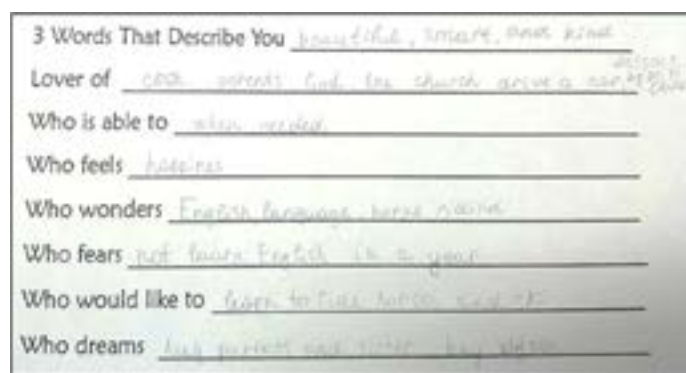 3 Words That Describe You beautiful, smart, and kind
Lover of parents God, the church drive a
Who is able to when needed
Who feels happines
Who wonders English language, horse
Who fears not learn English in a year
Who would like to learn to ride horse
Who dreams hug parents and sister